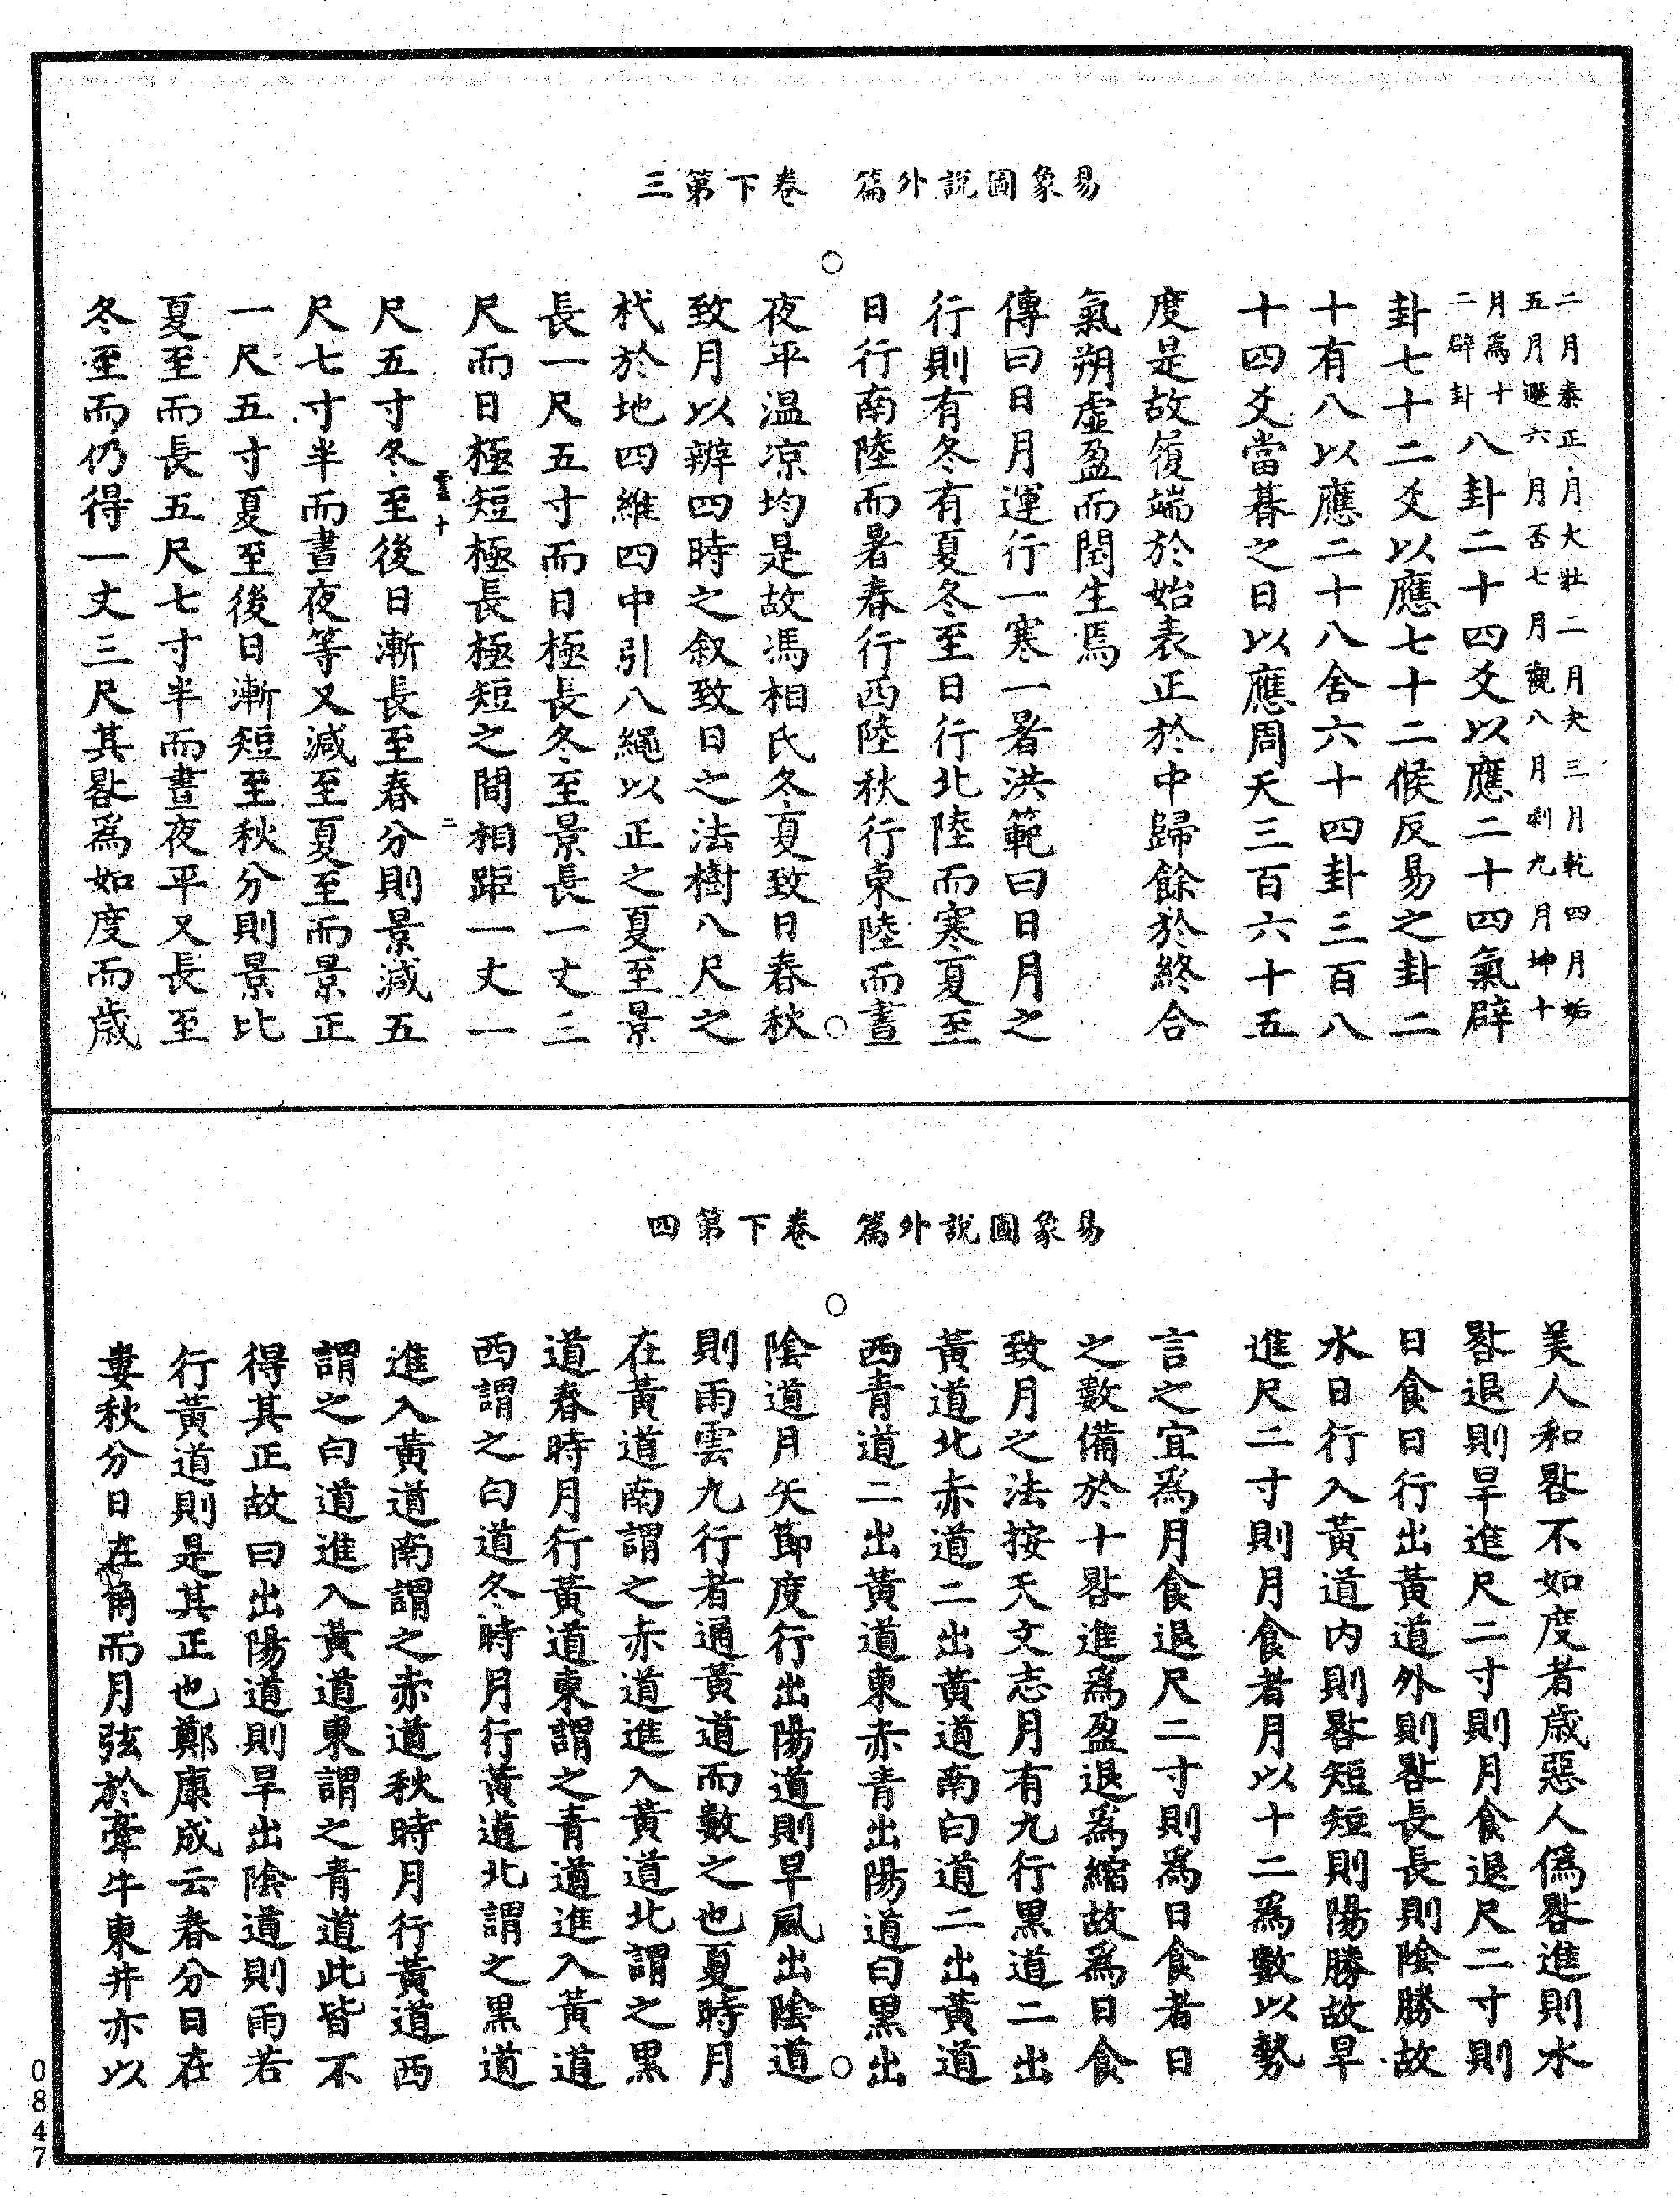 易象圖說外篇　卷下第三
二月泰正月大壯二月夬三月乾四月姤
五月遯六月否七月觀八月剝九月坤十
月爲十
二辟卦
八卦二十四爻以應二十四氣辟
卦七十二爻以應七十二候反易之卦二
十有八以應二十八舍六十四卦三百八
十四爻當朞之日以應周天三百六十五
度是故履端於始表正於中歸餘於終合
氣朔虛盈而閏生焉
傳曰日月運行一寒一暑洪範曰日月之
行則有冬有夏冬至日行北陸而寒夏至
日行南陸而暑春行西陸秋行東陸而晝
夜平温凉均是故馮相氏冬夏致日春秋
致月以辨四時之叙致日之法樹八尺之
杙於地四維四中引八繩以正之夏至景
長一尺五寸而日極長冬至景長一丈三
尺而日極短極長極短之間相距一丈一
雲十
二
尺五寸冬至後日漸長至春分則景減五
尺七寸半而晝夜等又減至夏至而景正
一尺五寸夏至後日漸短至秋分則景比
夏至而長五尺七寸半而晝夜平又長至
冬至而仍得一丈三尺其晷爲如度而歲
易象圖說外篇　卷下第四
美人和晷不如度者歲惡人僞晷進則水
晷退則旱進尺二寸則月食退尺二寸則
日食日行出黃道外則晷長長則陰勝故
水日行入黃道内則晷短短則陽勝故旱
進尺二寸則月食者月以十二爲數以勢
言之宜爲月食退尺二寸則爲日食者日
之數備於十晷進爲盈退爲縮故爲日食
致月之法按天文志月有九行黑道二出
黃道北赤道二出黃道南白道二出黃道
西青道二出黃道東赤青出陽道白黑出
陰道月矢節度行出陽道則旱風出陰道
則雨雲九行者通黃道而數之也夏時月
在黃道南謂之赤道進入黃道北謂之黑
道春時月行黃道東謂之青道進入黃道
西謂之白道冬時月行黃道北謂之黑道
進入黃道南謂之赤道秋時月行黃道西
謂之白道進入黃道東謂之青道此皆不
得其正故曰出陽道則旱出陰道則雨若
行黃道則是其正也鄭康成云春分日在
婁秋分日在角而月弦於牽牛東井亦以
0847